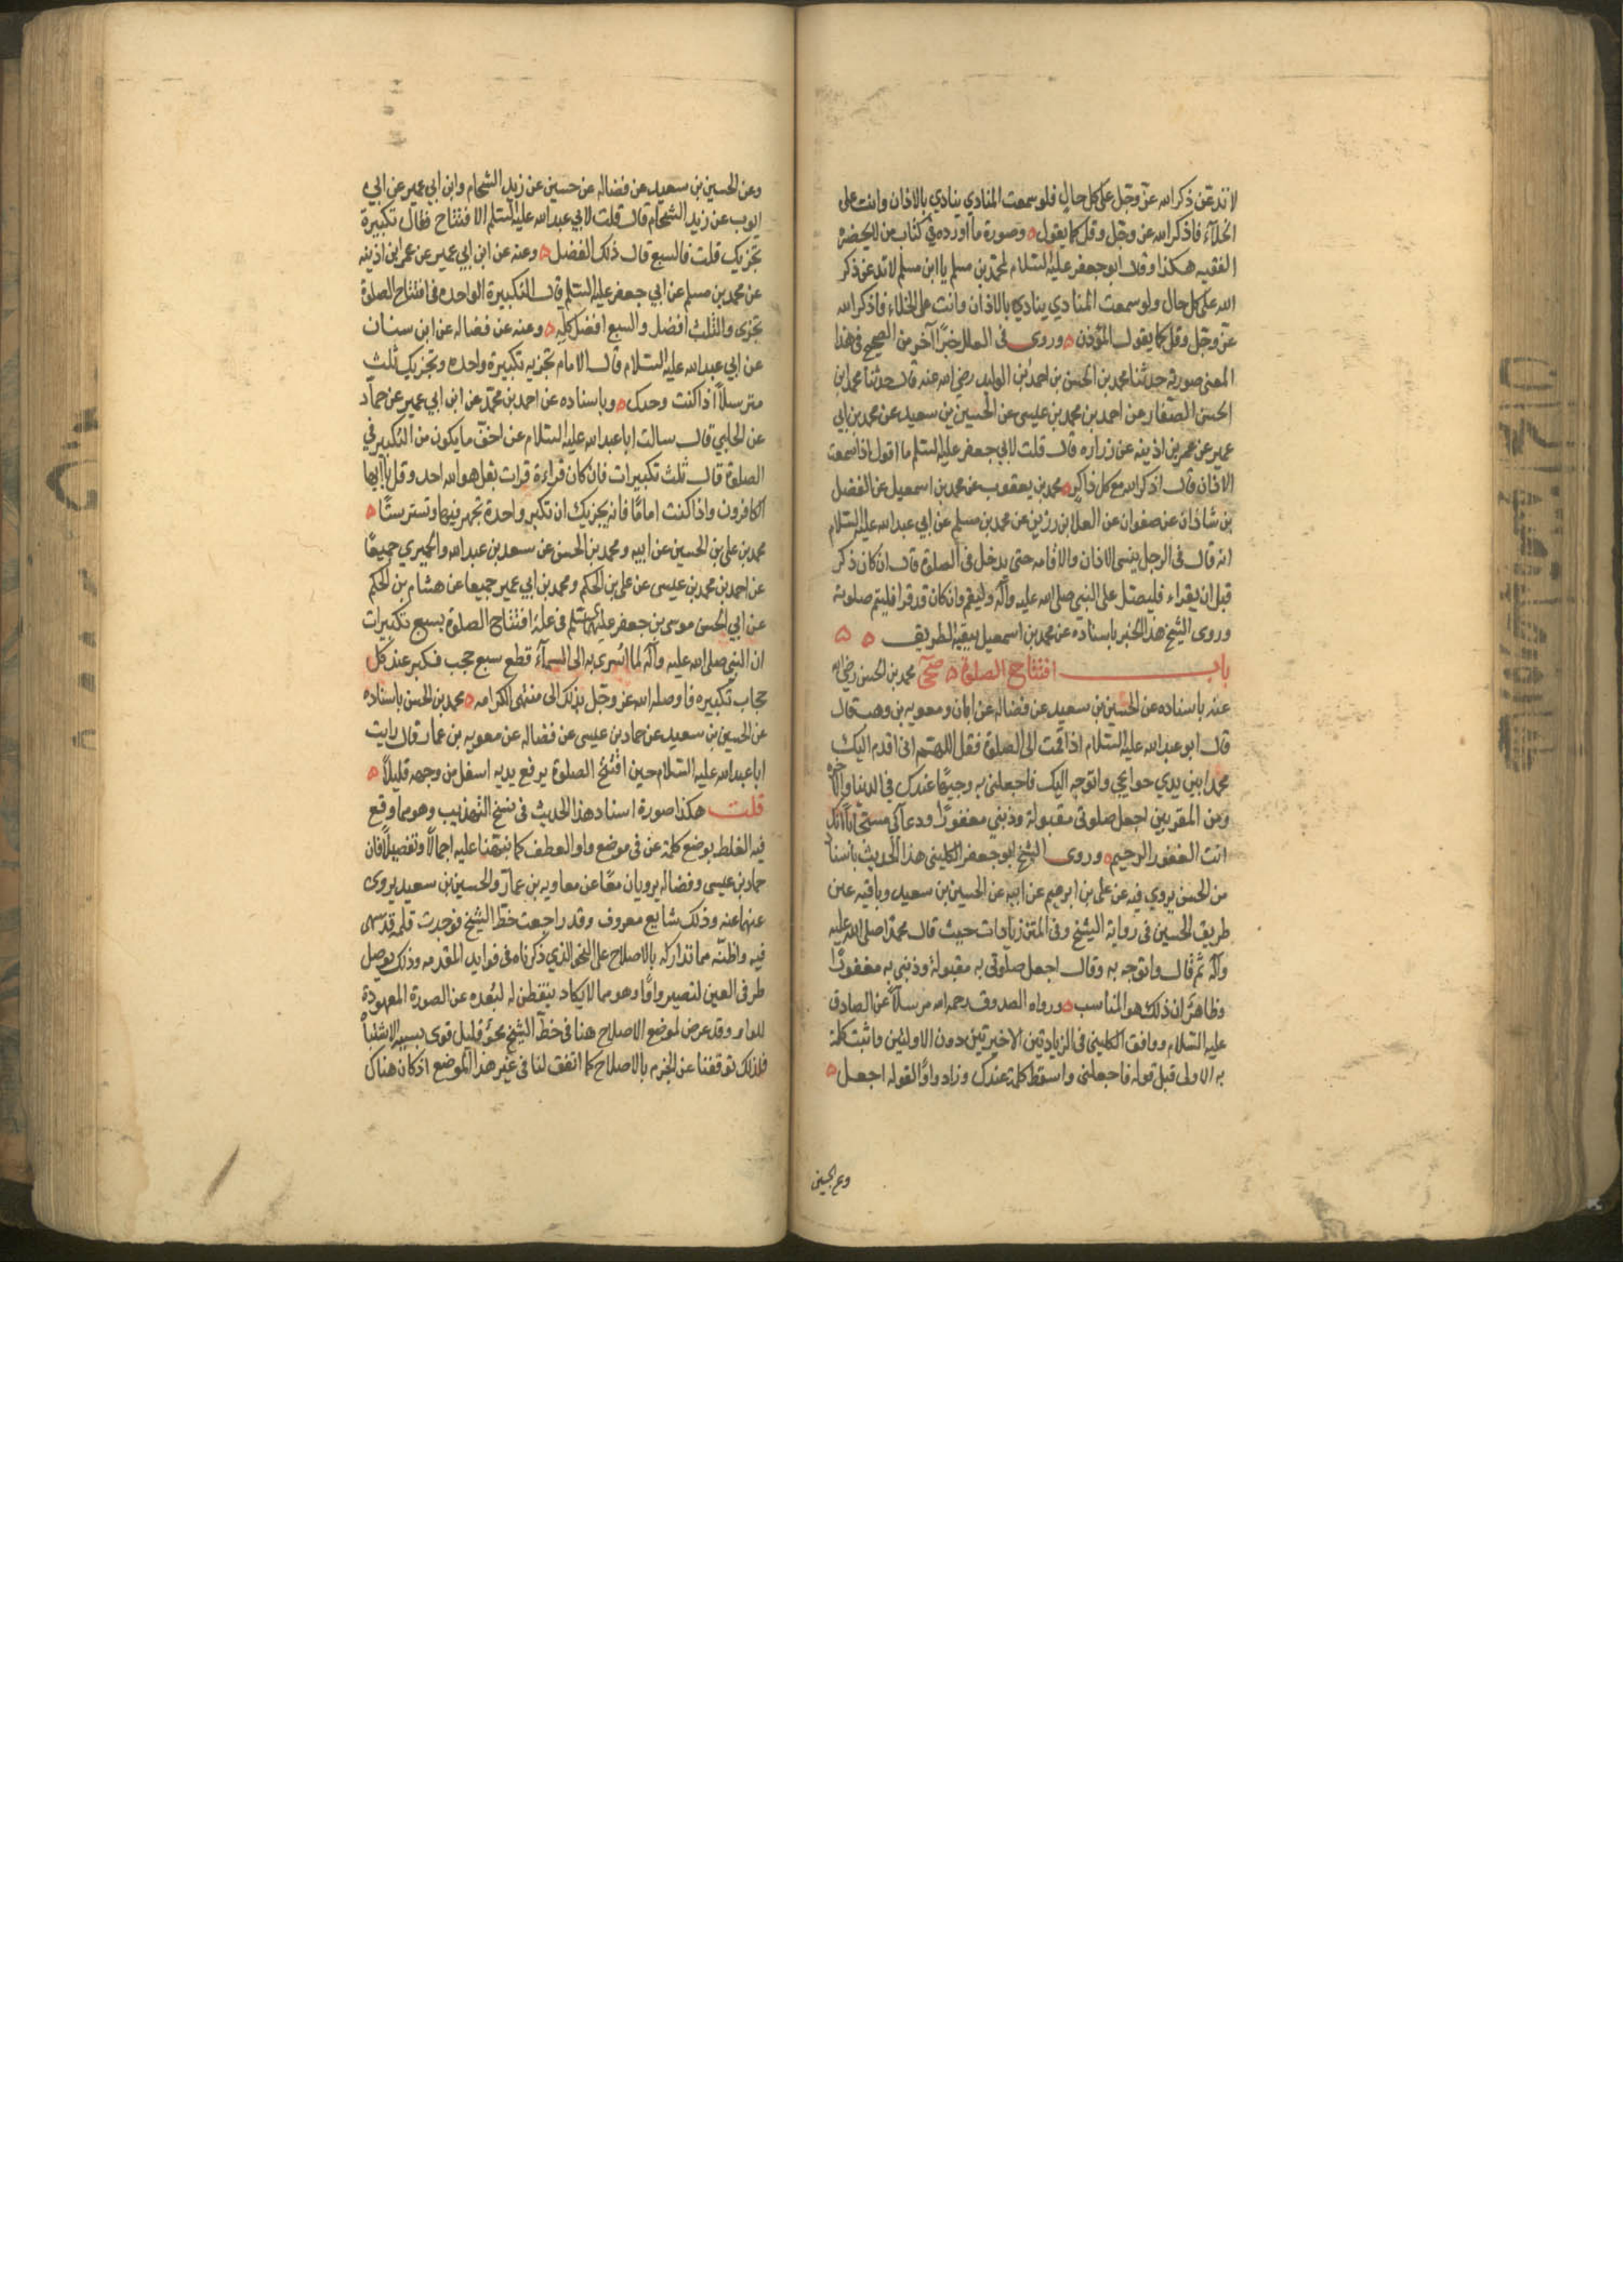 لا تدعن ذكر الله عز وجل على كل حال فلو سمعت المنادي ينادي بالاذان وانت على
الخلآء فاذكر الله عز وجل وقل كما يقول ه وصورة ما اورده في كتاب من لا يحضره
الفقيه هكذا وقال ابو جعفر عليه السلام لمحمد بن مسلم يا ابن مسلم لا تدعن ذكر
الله على كل حال ولو سمعت المنادي ينادي بالاذان وانت على الخلاء فاذكر الله
عز وجل وقل كما يقول المؤذن ه وروى في العلل خبرًا آخر من الصحيح في هذا
المعنى صورته حدثنا محمد بن الحسن بن احمد بن الوليد رضي الله عنه قال حدثنا محمد بن
الحسن الصفار عن احمد بن محمد بن عيسى عن الحسين بن سعيد عن محمد بن ابي
عمير عن عمر بن اذينه عن زراره قال قلت لابي جعفر عليه السلم ما اقول اذا سمعت
الاذان قال اذكر الله مع كل ذاكر ه محمد بن يعقوب عن محمد بن اسمعيل عن الفضل
بن شاذان عن صفوان عن العلا بن رزين عن محمد بن مسلم عن ابي عبد الله عليه السلام
انه قال في الرجل ينسى الاذان والاقامه حتى يدخل في الصلوة قال ان كان ذكر
قبل ان يقراء فليصل على النبي صلى الله عليه وآله وليقم وان كان قد قرا فليتم صلوته
وروى الشيخ هذا الخبر باسناده عن محمد بن اسمعيل ببقية الطريق ه ه
باب افتتاح الصلوة ه صحي محمد بن الحسن رضي الله
عنه باسناده عن الحسين بن سعيد عن فضاله عن ابان ومعويه بن وهب قال
قال ابو عبد الله عليه السلام اذا قمت الى الصلوة فقل اللهم اني اقدم اليك
محمدا بين يدي حوايجي واتوجه اليك فاجعلني به وجيهًا عندك في الدنيا والاخره
ومن المقربين اجعل صلوتي مقبولة وذنبي مغفورًا ودعآئي مستجابًا انك
انت الغفور الرحيم ه وروى الشيخ ابو جعفر الكليني هذا الحديث باسناد
من الحسن يروي فيه عن علي بن ابرهيم عن ابيه عن الحسين بن سعيد وباقيه عين
طريق الحسين في رواية الشيخ وفي المتن زيادات حيث قال محمدًا صلى الله عليه
وآله ثم قال واتوجه به وقال اجعل صلوتي به مقبولة وذنبي به مغفورًا
وظاهر ان ذلك هو المناسب ه ورواه الصدوق رحمه الله مرسلاً عن الصادق
عليه السلام ووافق الكليني في الزيادتين الاخيرتين دون الاوليين واثبت كلمة
به الاولى قبل قوله فاجعلني واسقط كلمة عندك وزاد واوًا لقوله اجعل ه
وعن الحسين
وعن الحسين بن سعيد عن فضاله عن حسين عن زيد الشحام وابن ابي عمير عن ابي
ايوب عن زيد الشحام قال قلت لابي عبد الله عليه السلم الافتتاح فقال تكبيرة
تجزيك قلت فالسبع قال ذلك الفضل ه وعنه عن ابن ابي عمير عن عمر ابن اذينه
عن محمد بن مسلم عن ابي جعفر عليه السلم قال التكبيرة الواحده في افتتاح الصلوة
تجزى والثلث افضل والسبع افضل كله ه وعنه عن فضاله عن ابن سنان
عن ابي عبد الله عليه السلام قال الامام تجزيه تكبيرة واحده وتجزيك ثلث
مترسلاً اذا كنت وحدك ه وباسناده عن احمد بن محمد عن ابن ابي عمير عن حماد
عن الحلبي قال سالت ابا عبد الله عليه السلام عن اخف ما يكون من التكبير في
الصلوة قال ثلث تكبيرات فان كان قراءة قرات بقل هو الله احد وقل يا ايها
الكافرون واذا كنت امامًا فانه يجزيك ان تكبر واحدة تجهر فيها وتستر ستًا ه
محمد بن علي بن الحسين عن ابيه ومحمد بن الحسن عن سعد بن عبد الله والحميري جميعًا
عن احمد بن محمد بن عيسى عن علي بن الحكم ومحمد بن ابي عمير جميعا عن هشام بن الحكم
عن ابي الحسن موسى بن جعفر عليهما السلم في علة افتتاح الصلوة بسبع تكبيرات
ان النبي صلى الله عليه وآله لما اسرى به الى السمآء قطع سبع حجب فكبر عند كل
حجاب تكبيره فاوصله الله عز وجل بذلك الى منتهى الكرامه ه محمد بن الحسن باسناده
عن الحسين بن سعيد عن حماد بن عيسى عن فضاله عن معويه بن عمار قال رايت
ابا عبد الله عليه السلام حين افتتح الصلوة يرفع يديه اسفل من وجهه قليلاً ه
قلت هكذا صورة اسناد هذا الحديث في نسخ التهذيب وهو مما وقع
فيه الغلط بوضع كلمة عن في موضع واو العطف كما نبهنا عليه اجمالاً وتفصيلاً فان
حماد بن عيسى وفضاله يرويان معًا عن معاويه بن عمار والحسين بن سعيد يروى
عنهما عنه وذلك شايع معروف وقد راجعت خط الشيخ فوجدت قلمه قد سهى
فيه واظنه مما تداركه بالاصلاح على النحو الذي ذكرناه في فوايد المقدمه وذلك بوصل
طرفي العين لتصير واوًا وهو مما لا يكاد يتفطن له لبعده عن الصورة المعهودة
للواو وقد عرض لموضع الاصلاح هنا في خط الشيخ محو قليل قوى بسببه الاشتباه
فلذلك توقفنا عن الجزم بالاصلاح كما اتفق لنا في غير هذا الموضع اذ كان هناك